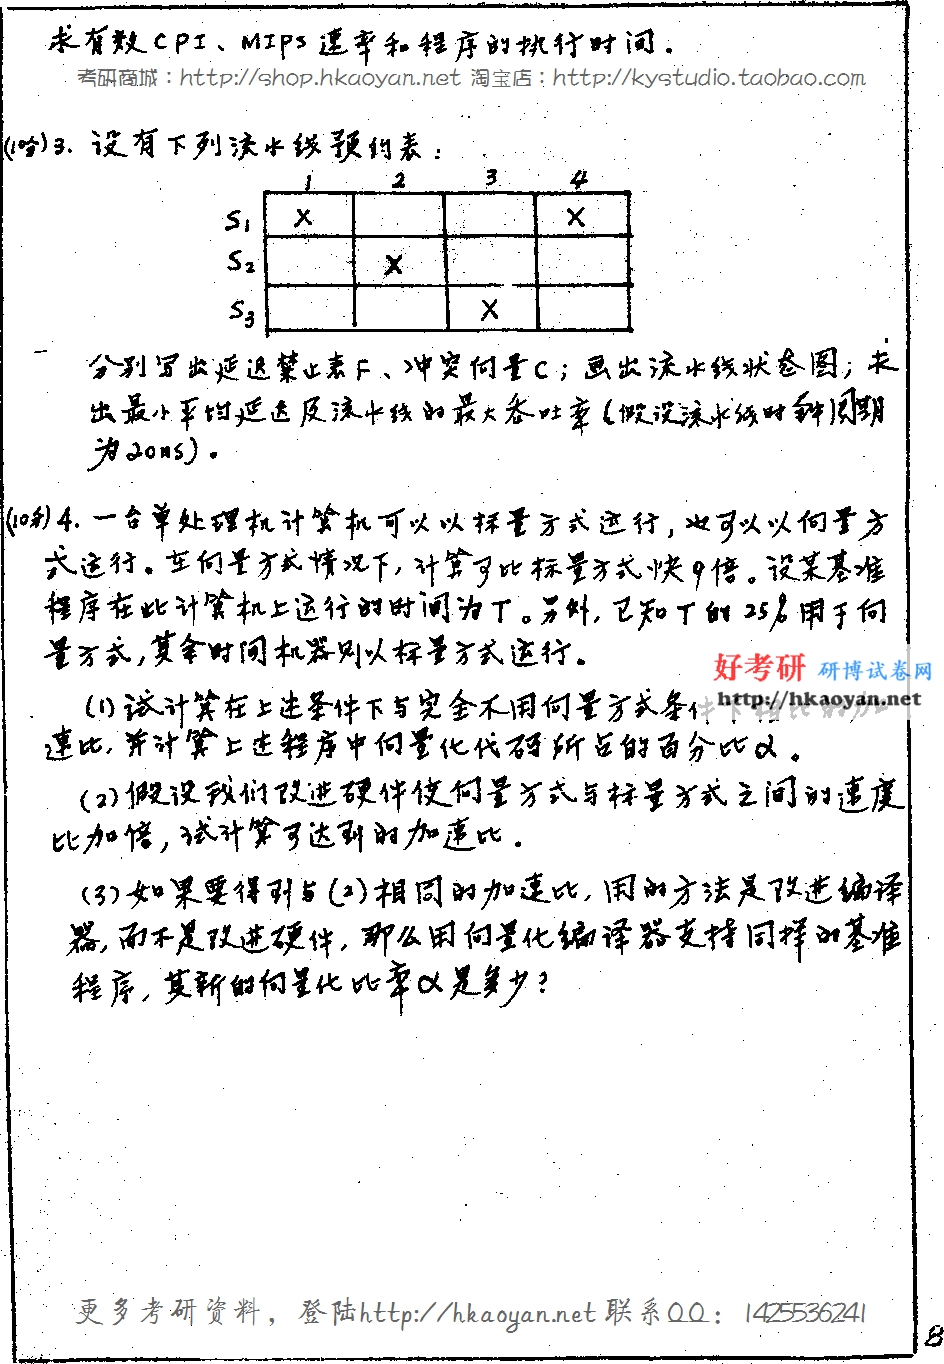 求有效CPI、MIPS速率和程序的执行时间.
考研商城：http://shop.hkaoyan.net 淘宝店：http://kystudio.taobao.com
(10分)3. 设有下列流水线预约表：
1 2 3 4
S1 X X
S2 X
S3 X
分别写出延迟禁止表F、冲突向量C；画出流水线状态图；求
出最小平均延迟及流水线的最大吞吐率(假设流水线时钟周期
为20ns)。
(10分)4. 一台单处理机计算机可以以标量方式运行，也可以以向量方
式运行。在向量方式情况下，计算可比标量方式快9倍。设某基准
程序在此计算机上运行的时间为T。另外，已知T的25%用于向
量方式，其余时间机器则以标量方式运行。
好考研 研博试卷网
http://hkaoyan.net
(1)试计算在上述条件下与完全不用向量方式条件下相比的加
速比，并计算上述程序中向量化代码所占的百分比α。
(2)假设我们改进硬件使向量方式与标量方式之间的速度
比加倍，试计算可达到的加速比.
(3)如果要得到与(2)相同的加速比，用的方法是改进编译
器，而不是改进硬件，那么用向量化编译器支持同样的基准
程序，其新的向量化比率α是多少？
更多考研资料，登陆http://hkaoyan.net 联系QQ：1425536241
8